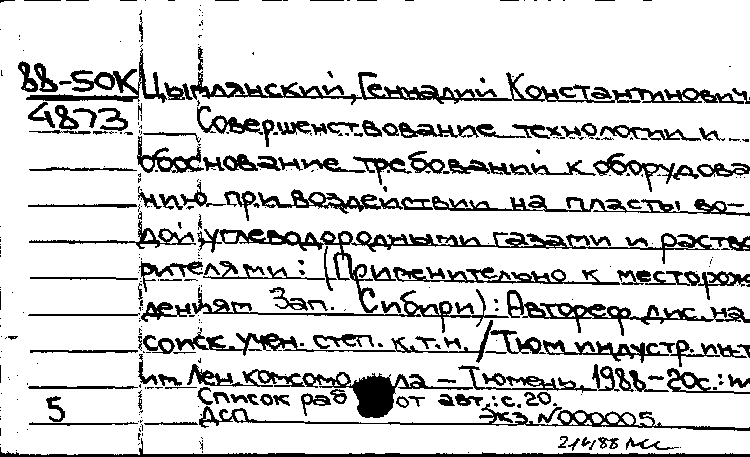 88-50К Цымлянский, Геннадий Константинович.
4873 Совершенствование технологии и
обоснование требований к оборудова
нию при воздействии на пласты во-
дой, углеводородными газами и раство
рителями: (Применительно к месторож
дениям Зап. Сибири): Автореф. дис. на
соиск. учен. степ. к.т.н. / Тюм. индустр. ин-т
им. Лен. комсомола – Тюмень, 1988 – 20с.: ил
Список работ авт.: с. 20.
5 ДСП. Экз. N000005.